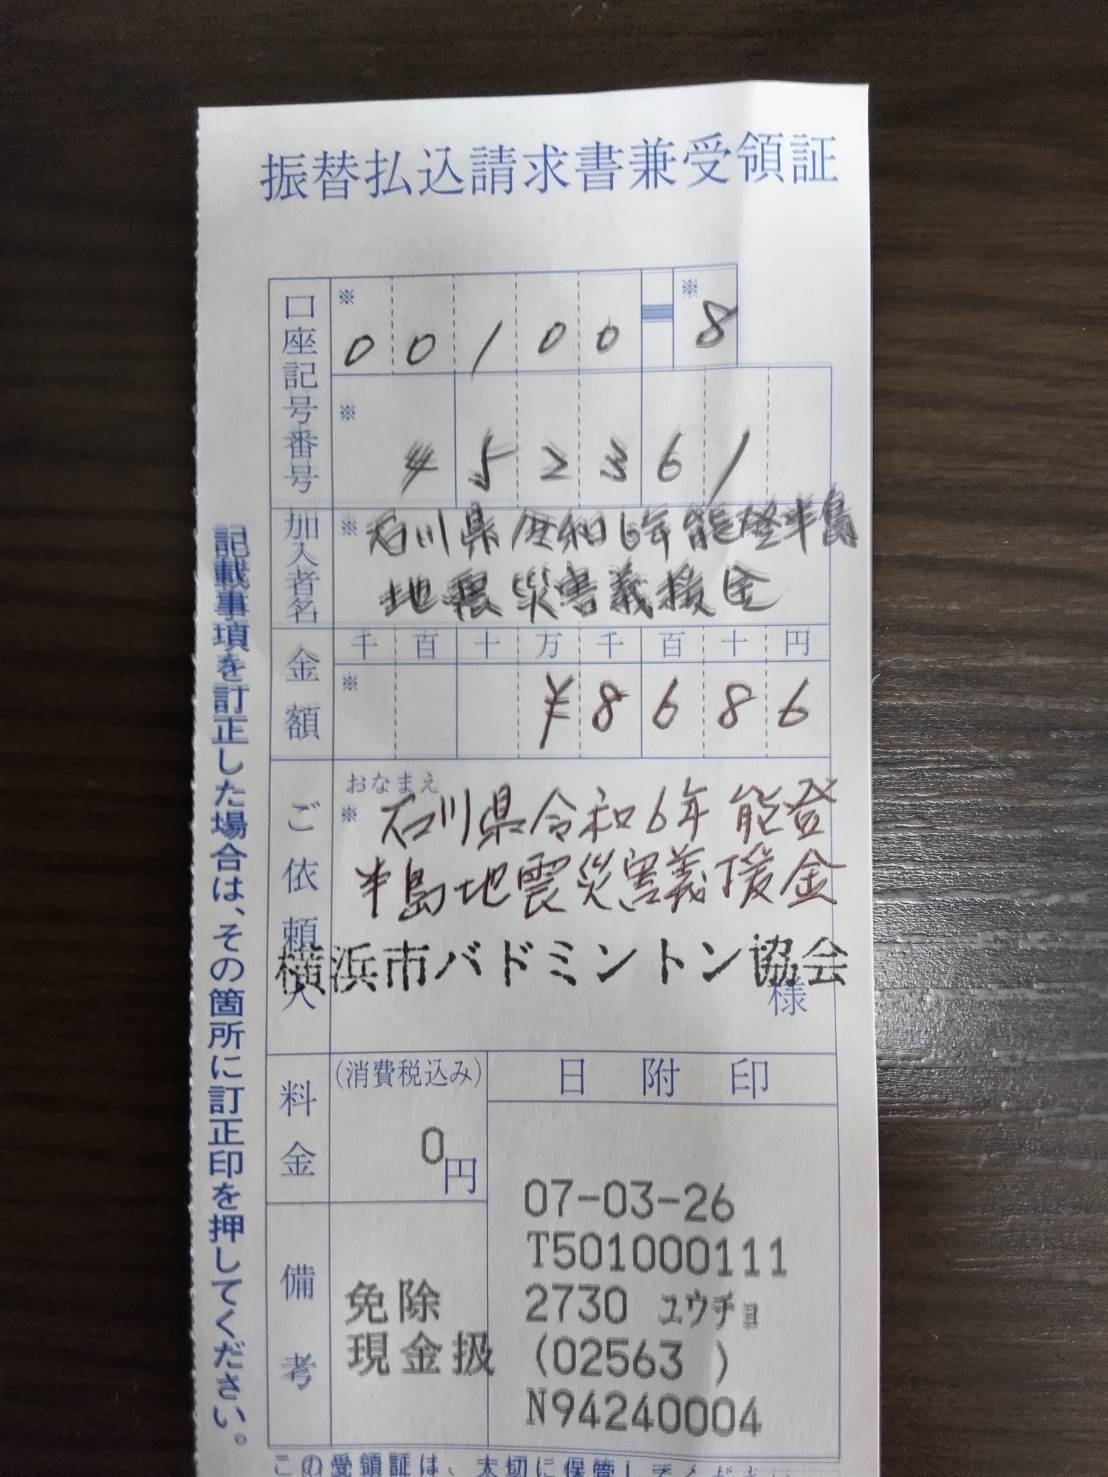 振替払込請求書兼受領証
口座記号番号
※ 00100-8 ※
※ 452361
加入者名
※ 石川県令和6年能登半島
地震災害義援金
金額
千百十万千百十円
※ ¥8686
ご依頼人
おなまえ
※ 石川県令和6年能登
半島地震災害義援金
横浜市バドミントン協会
様
料金
(消費税込み)
0円
日附印
07-03-26
T501000111
2730 ユウチョ
(02563 )
N94240004
備考
免除
現金扱
記載事項を訂正した場合は、その箇所に訂正印を押してください。
この受領証は、大切に保管してください